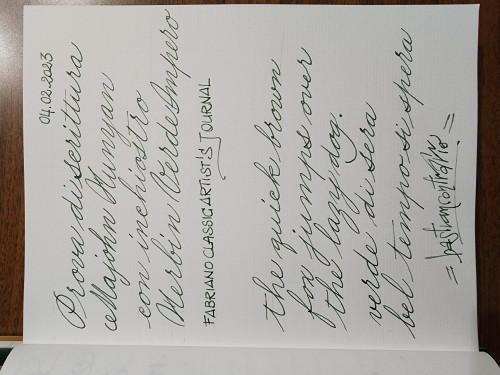 04.02.2023
Prova di scrittura
Majohn Hunyan
con inchiostro
Herbin Verde Impero
FABRIANO CLASSIC ARTIST'S JOURNAL
the quick brown
fox jumps over
the lazy dog.
verde di sera
bel tempo si spera